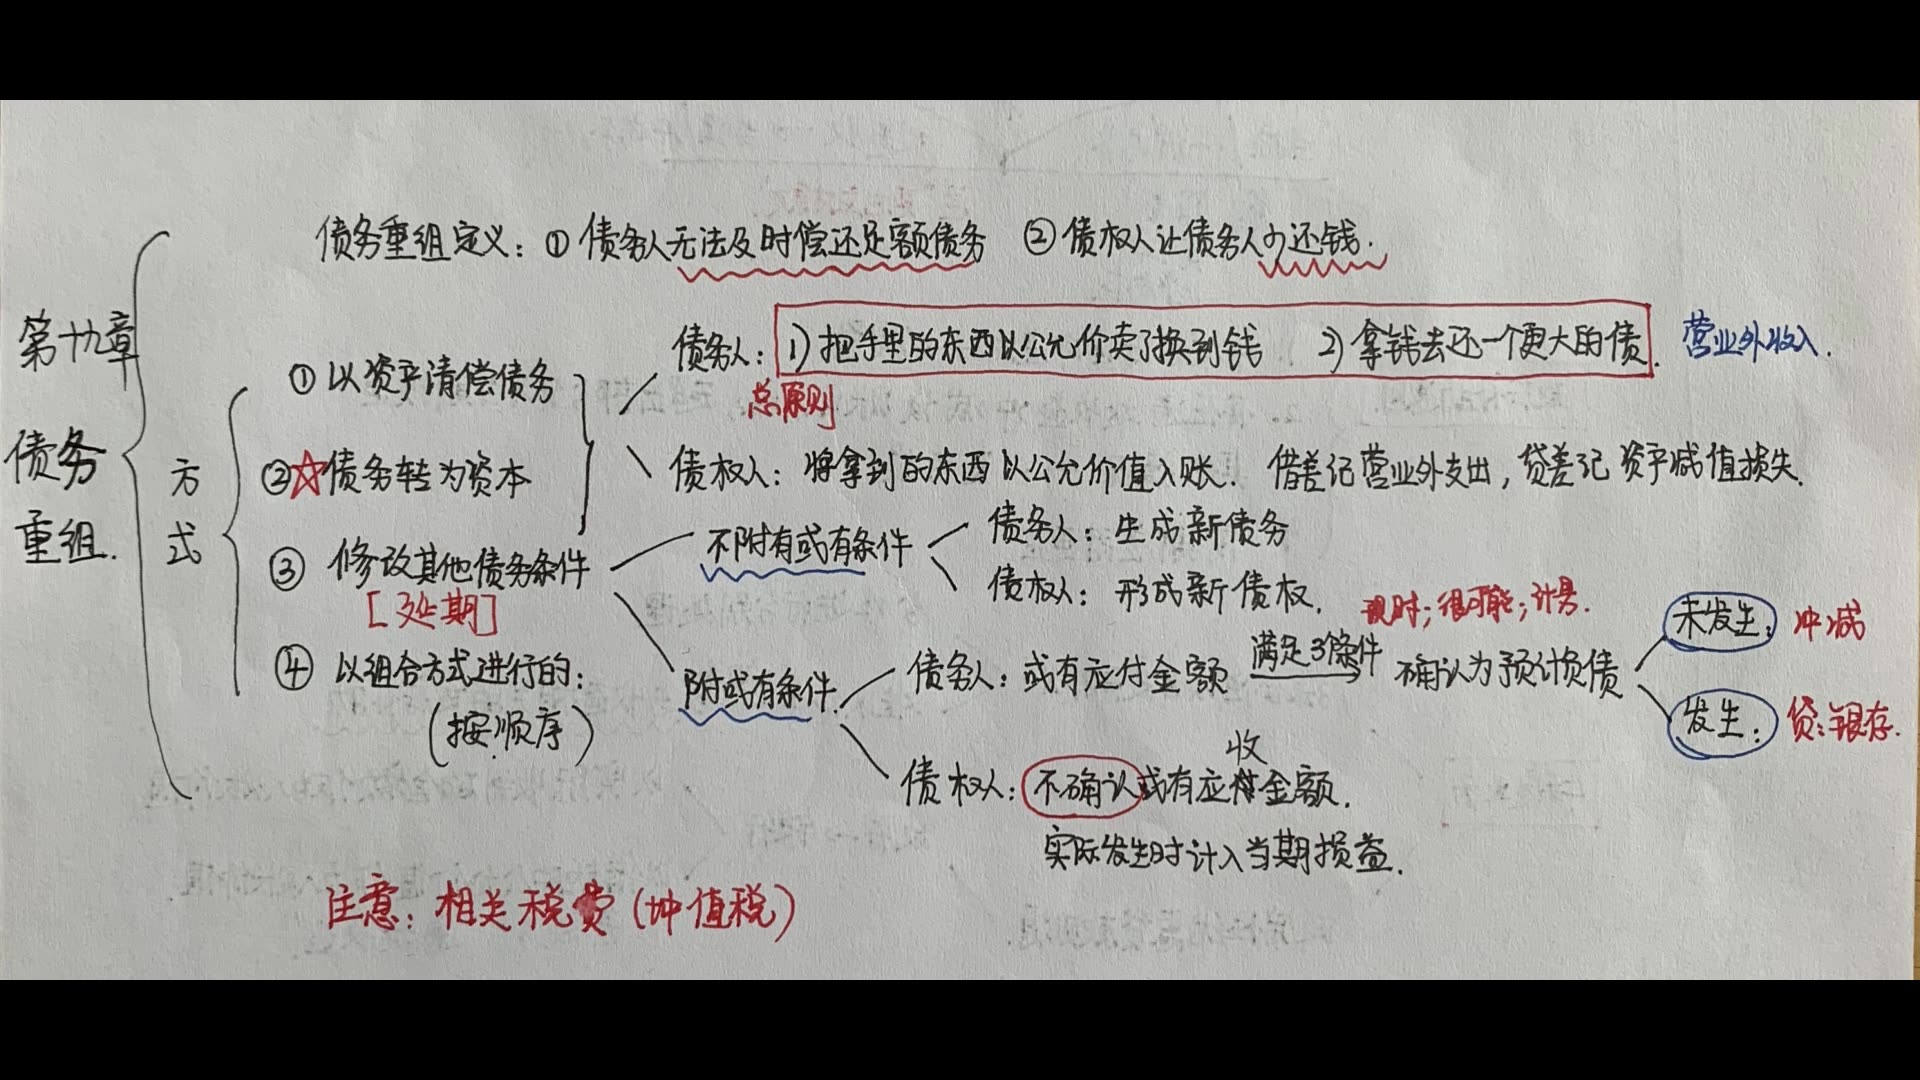 债务重组定义：① 债务人无法及时偿还足额债务 ② 债权人让债务人少还钱.
第十九章
债务
重组.
方式
① 以资产清偿债务
债务人：1) 把手里的东西以公允价卖了换到钱 2) 拿钱去还一个更大的债. 营业外收入.
总原则
②☆债务转为资本
债权人：将拿到的东西以公允价值入账. 借差记营业外支出，贷差记资产减值损失.
③ 修改其他债务条件
[延期]
不附有或有条件
债务人：生成新债务
债权人：形成新债权.
附或有条件.
债务人：或有应付金额 满足3条件 确认为预计负债
现时；很可能；计易.
未发生：冲减
发生：贷：银存.
债权人：不确认或有应收金额.
实际发生时计入当期损益.
④ 以组合方式进行的：
(按顺序)
注意：相关税费(增值税)